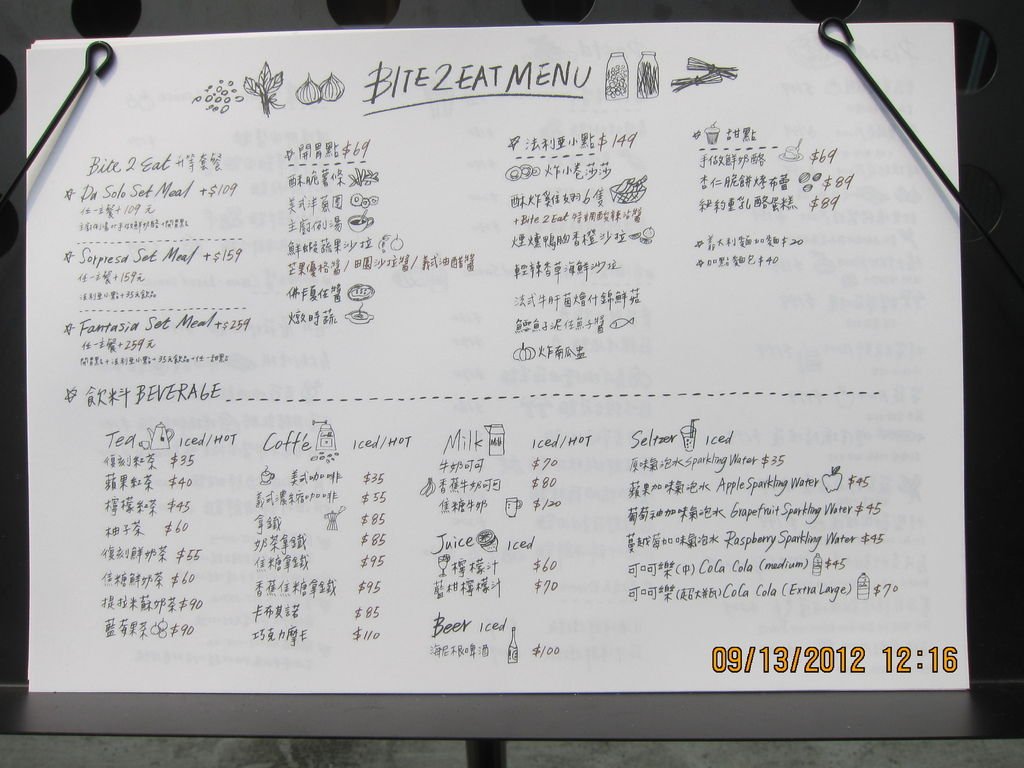 BITE2EAT MENU
Bite 2 Eat 升等套餐
Da Solo Set Meal +$109
任一主餐+109元
Sorpresa Set Meal +$159
任一主餐+159元
法利亞小點+35元飲品
Fantasia Set Meal +$259
任一主餐+259元
開胃點+法利亞小點+35元飲品+任一甜點
開胃點 $69
酥脆薯條
美式洋蔥圈
主廚例湯
鮮蝦蔬果沙拉
芒果優格醬/田園沙拉醬/義式油醋醬
佛卡夏佐醬
燉時蔬
法利亞小點 $149
炸小卷莎莎
+Bite 2 Eat 特調酸辣沾醬
煙燻鴨胸香橙沙拉
輕辣香草海鮮沙拉
法式牛肝菌燴什錦鮮菇
鱈魚子泥佐魚子醬
炸南瓜盅
甜點
手做鮮奶酪 $69
杏仁脆餅烤布蕾 $89
紐約重乳酪蛋糕 $89
義大利麵加麵 $20
加點麵包 $40
飲料 BEVERAGE
Tea ICED/HOT
復刻紅茶 $35
蘋果紅茶 $40
檸檬紅茶 $45
柚子茶 $60
復刻鮮奶茶 $55
焦糖鮮奶茶 $60
提拉米蘇奶茶 $90
藍莓果茶 $90
Coffe ICED/HOT
美式咖啡 $35
義式濃縮咖啡 $55
拿鐵 $85
奶茶拿鐵 $85
焦糖拿鐵 $95
香蕉焦糖拿鐵 $95
卡布其諾 $85
巧克力摩卡 $110
Milk ICED/HOT
牛奶可可 $70
香蕉牛奶可可 $80
焦糖牛奶 $120
Juice Iced
檸檬汁 $60
藍柑檸檬汁 $70
Beer Iced
海尼根啤酒 $100
Seltzer Iced
原味氣泡水 Sparkling Water $35
蘋果加味氣泡水 Apple Sparkling Water $45
葡萄柚加味氣泡水 Grapefruit Sparkling Water $45
蔓越莓加味氣泡水 Raspberry Sparkling Water $45
可口可樂(中) CoCa Cola (medium) $45
可口可樂(超大瓶) CoCa Cola (Extra Large) $70
09/13/2012 12:16